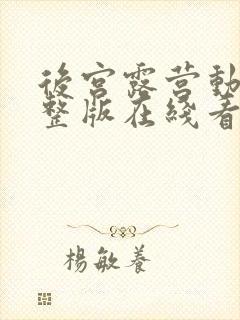 後宮露营動
整版在綫看
楊敏養